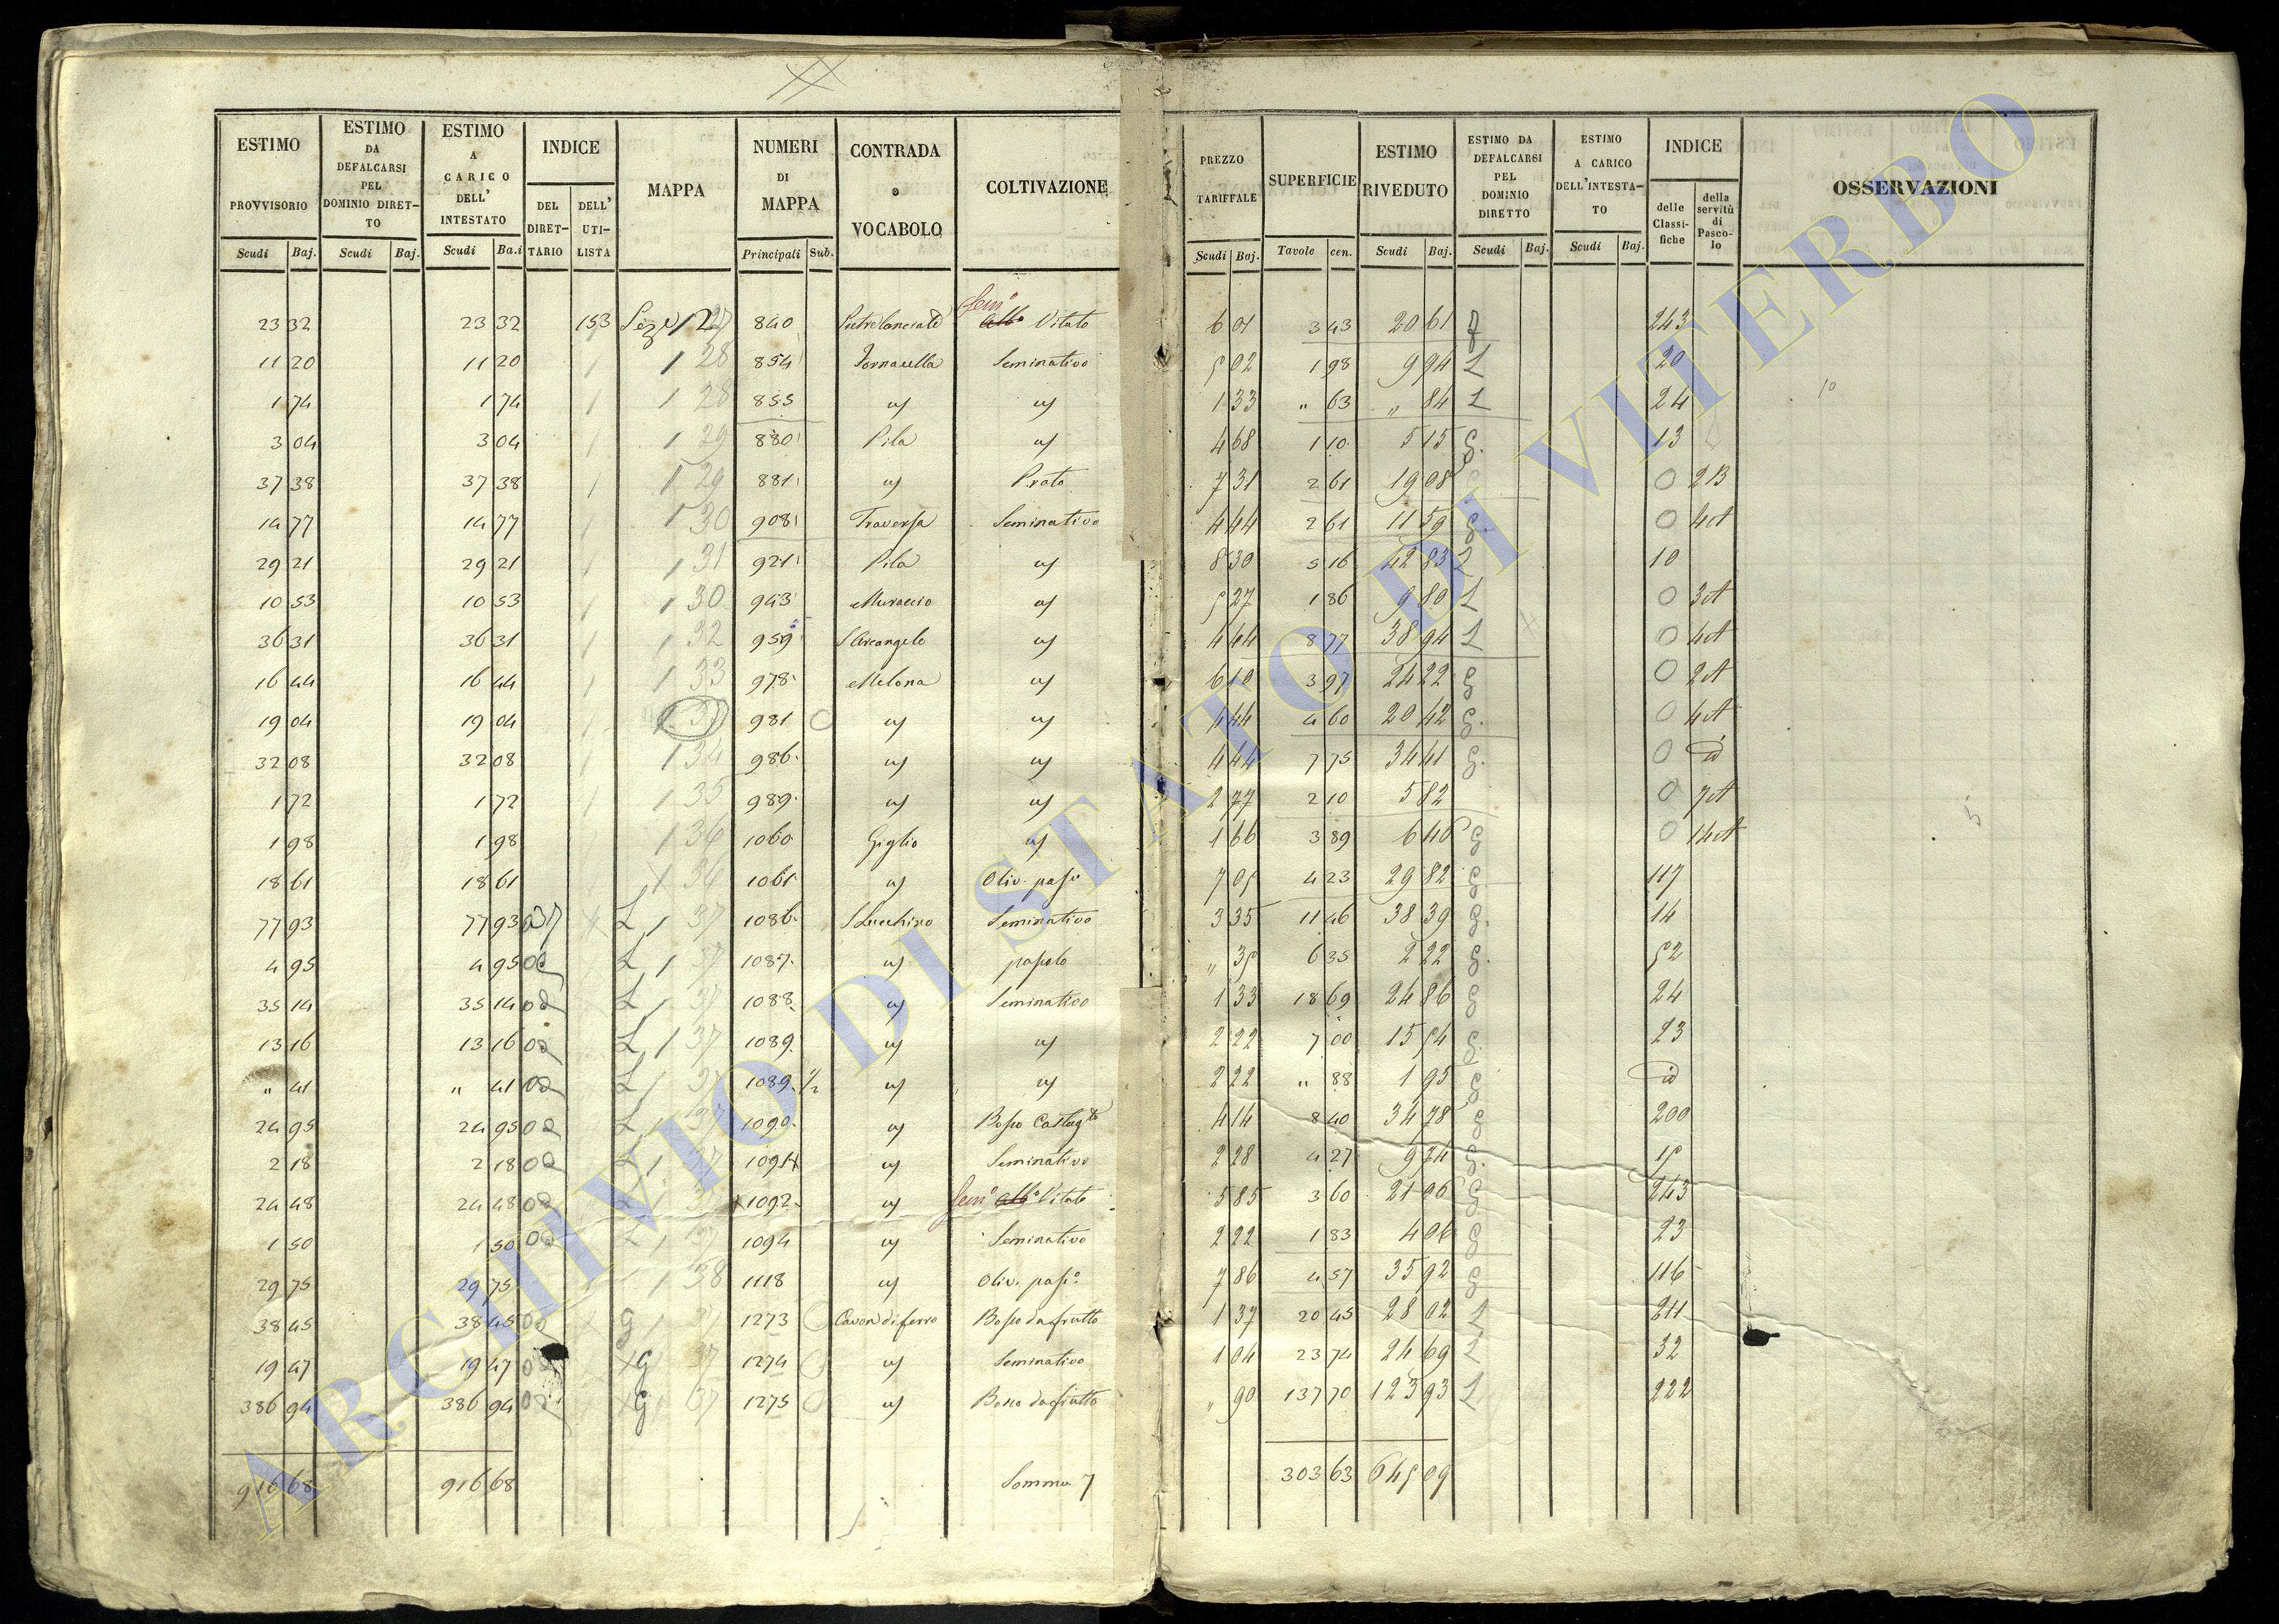 ESTIMO PROVVISORIO Scudi Baj.
ESTIMO DA DEFALCARSI PEL DOMINIO DIRET-TO Scudi Baj.
ESTIMO A CARICO DELL' INTESTATO Scudi Ba.i
INDICE DEL DIRET-TARIO DELL' UTI-LISTA
MAPPA
NUMERI DI MAPPA Principali Sub.
CONTRADA o VOCABOLO
COLTIVAZIONE
PREZZO TARIFFALE Scudi Baj.
SUPERFICIE Tavole cen.
ESTIMO RIVEDUTO Scudi Baj.
ESTIMO DA DEFALCARSI PEL DOMINIO DIRETTO Scudi Baj.
ESTIMO A CARICO DELL'INTESTA-TO Scudi Baj.
INDICE delle Classi-fiche della servitù di Pasco-lo
OSSERVAZIONI
23 32 23 32 153 1 27 840 Vitato 6 01 3 43 20 61 243
11 20 11 20 1 28 854 Fornacella Seminativo 5 02 1 98 9 94 L 20
1 74 1 74 1 28 855 " " 1 33 " 63 " 84 L 24
3 04 3 04 1 29 880 Pila " 4 68 1 10 5 15 13
37 38 37 38 1 29 881 " Prato 7 31 2 61 19 08 0 2B
14 77 14 77 1 30 908 Traversa Seminativo 4 44 2 61 11 59 0 4A
29 21 29 21 1 31 921 Pila " 8 30 5 16 42 83 L 10
10 53 10 53 1 30 943 Muraccio " 5 27 1 86 9 80 L 0 3A
36 31 36 31 1 32 959 S Arcangelo " 4 44 8 77 38 94 L 0 4A
16 44 16 44 1 33 978 Melona " 6 10 3 97 24 22 0 2A
19 04 19 04 981 " " 4 44 4 60 20 42 0 4A
32 08 32 08 1 34 986 " " 4 44 7 75 34 41 0 id
1 72 1 72 1 35 989 " " 2 77 2 10 5 82 0 7A
1 98 1 98 1 36 1060 Giglio " 1 66 3 89 6 46 0 14A
18 61 18 61 1 36 1061 " Oliv. pas.o 7 05 4 23 29 82 117
77 93 77 93 L 1 37 1086 S Lucchino Seminativo 3 35 11 46 38 39 14
4 95 4 95 L 1 37 1087 " pascolo " 35 6 35 2 22 52
35 14 35 14 L 1 37 1088 " Seminativo 1 33 18 69 24 86 24
13 16 13 16 L 1 37 1089 " " 2 22 7 00 15 54 23
" 41 " 41 L 1 37 1089 1/2 " " 2 22 " 88 1 95 id
24 95 24 95 L 1 37 1090 " Bosco Castag.o 4 14 8 40 34 78 200
2 18 2 18 L 1 37 1091 " Seminativo 2 28 4 27 9 74 15
24 48 24 48 L 1 37 1092 " Sem.o alb.o Vitato 5 85 3 60 21 06 243
1 50 1 50 L 1 37 1094 " Seminativo 2 22 1 83 4 06 23
29 75 29 75 1 38 1118 " Oliv. pas.o 7 86 4 57 35 92 116
38 45 38 45 g 37 1273 Cavon di ferro Bosco da frutto 1 37 20 45 28 02 L 211
19 47 19 47 g 37 1274 " Seminativo 1 04 23 74 24 69 L 32
386 94 386 94 g 37 1275 " Bosco da frutto " 90 137 70 123 93 L 222
916 68 916 68 Somma 303 63 645 09
ARCHIVIO DI STATO DI VITERBO